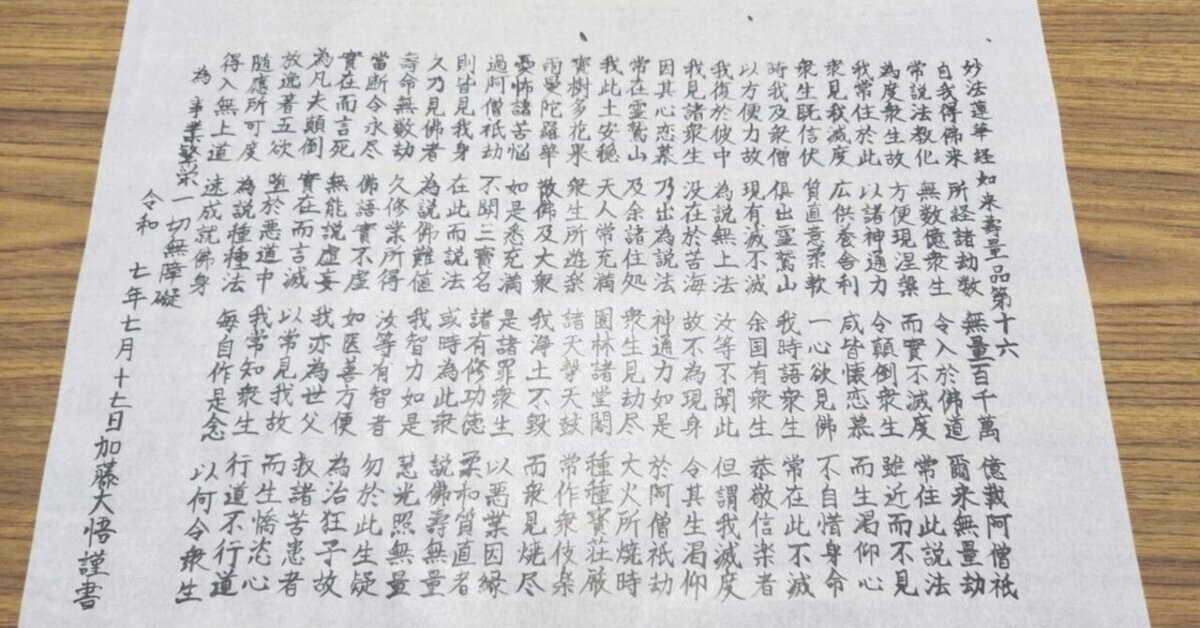 妙法蓮華経 如来壽量品第十六
自我得佛来 所経諸劫数 無量百千萬 億載阿僧祇
常説法教化 無数億衆生 令入於佛道 爾来無量劫
為度衆生故 方便現涅槃 而實不滅度 常住此説法
我常住於此 以諸神通力 令顛倒衆生 雖近而不見
衆見我滅度 広供養舎利 咸皆懐恋慕 而生渇仰心
衆生既信伏 質直意柔軟 一心欲見佛 不自惜身命
時我及衆僧 俱出霊鷲山 我時語衆生 常在此不滅
以方便力故 現有滅不滅 余国有衆生 恭敬信楽者
我復於彼中 為説無上法 汝等不聞此 但謂我滅度
我見諸衆生 没在於苦海 故不為現身 令其生渇仰
因其心恋慕 乃出為説法 神通力如是 於阿僧祇劫
常在霊鷲山 及余諸住処 衆生見劫尽 大火所焼時
我此土安穏 天人常充満 園林諸堂閣 種種寶荘厳
寶樹多花果 衆生所遊楽 諸天撃天鼓 常作衆伎楽
雨曼陀羅華 散佛及大衆 我浄土不毀 而衆見焼尽
憂怖諸苦悩 如是悉充満 是諸罪衆生 以悪業因縁
過阿僧祇劫 不聞三寶名 諸有修功徳 柔和質直者
則皆見我身 在此而説法 或時為此衆 説佛壽無量
久乃見佛者 為説佛難値 我智力如是 慧光照無量
壽命無数劫 久修業所得 汝等有智者 勿於此生疑
當断令永尽 佛語實不虚 如医善方便 為治狂子故
實在而言死 無能説虚妄 我亦為世父 救諸苦患者
為凡夫顛倒 實在而言滅 以常見我故 而生憍恣心
放逸者五欲 堕於悪道中 我常知衆生 行道不行道
随應所可度 為説種種法 毎自作是念 以何令衆生
得入無上道 速成就佛身
為 事業繁栄 一切無障礙
令和 七年七月十七日 加藤大悟謹書